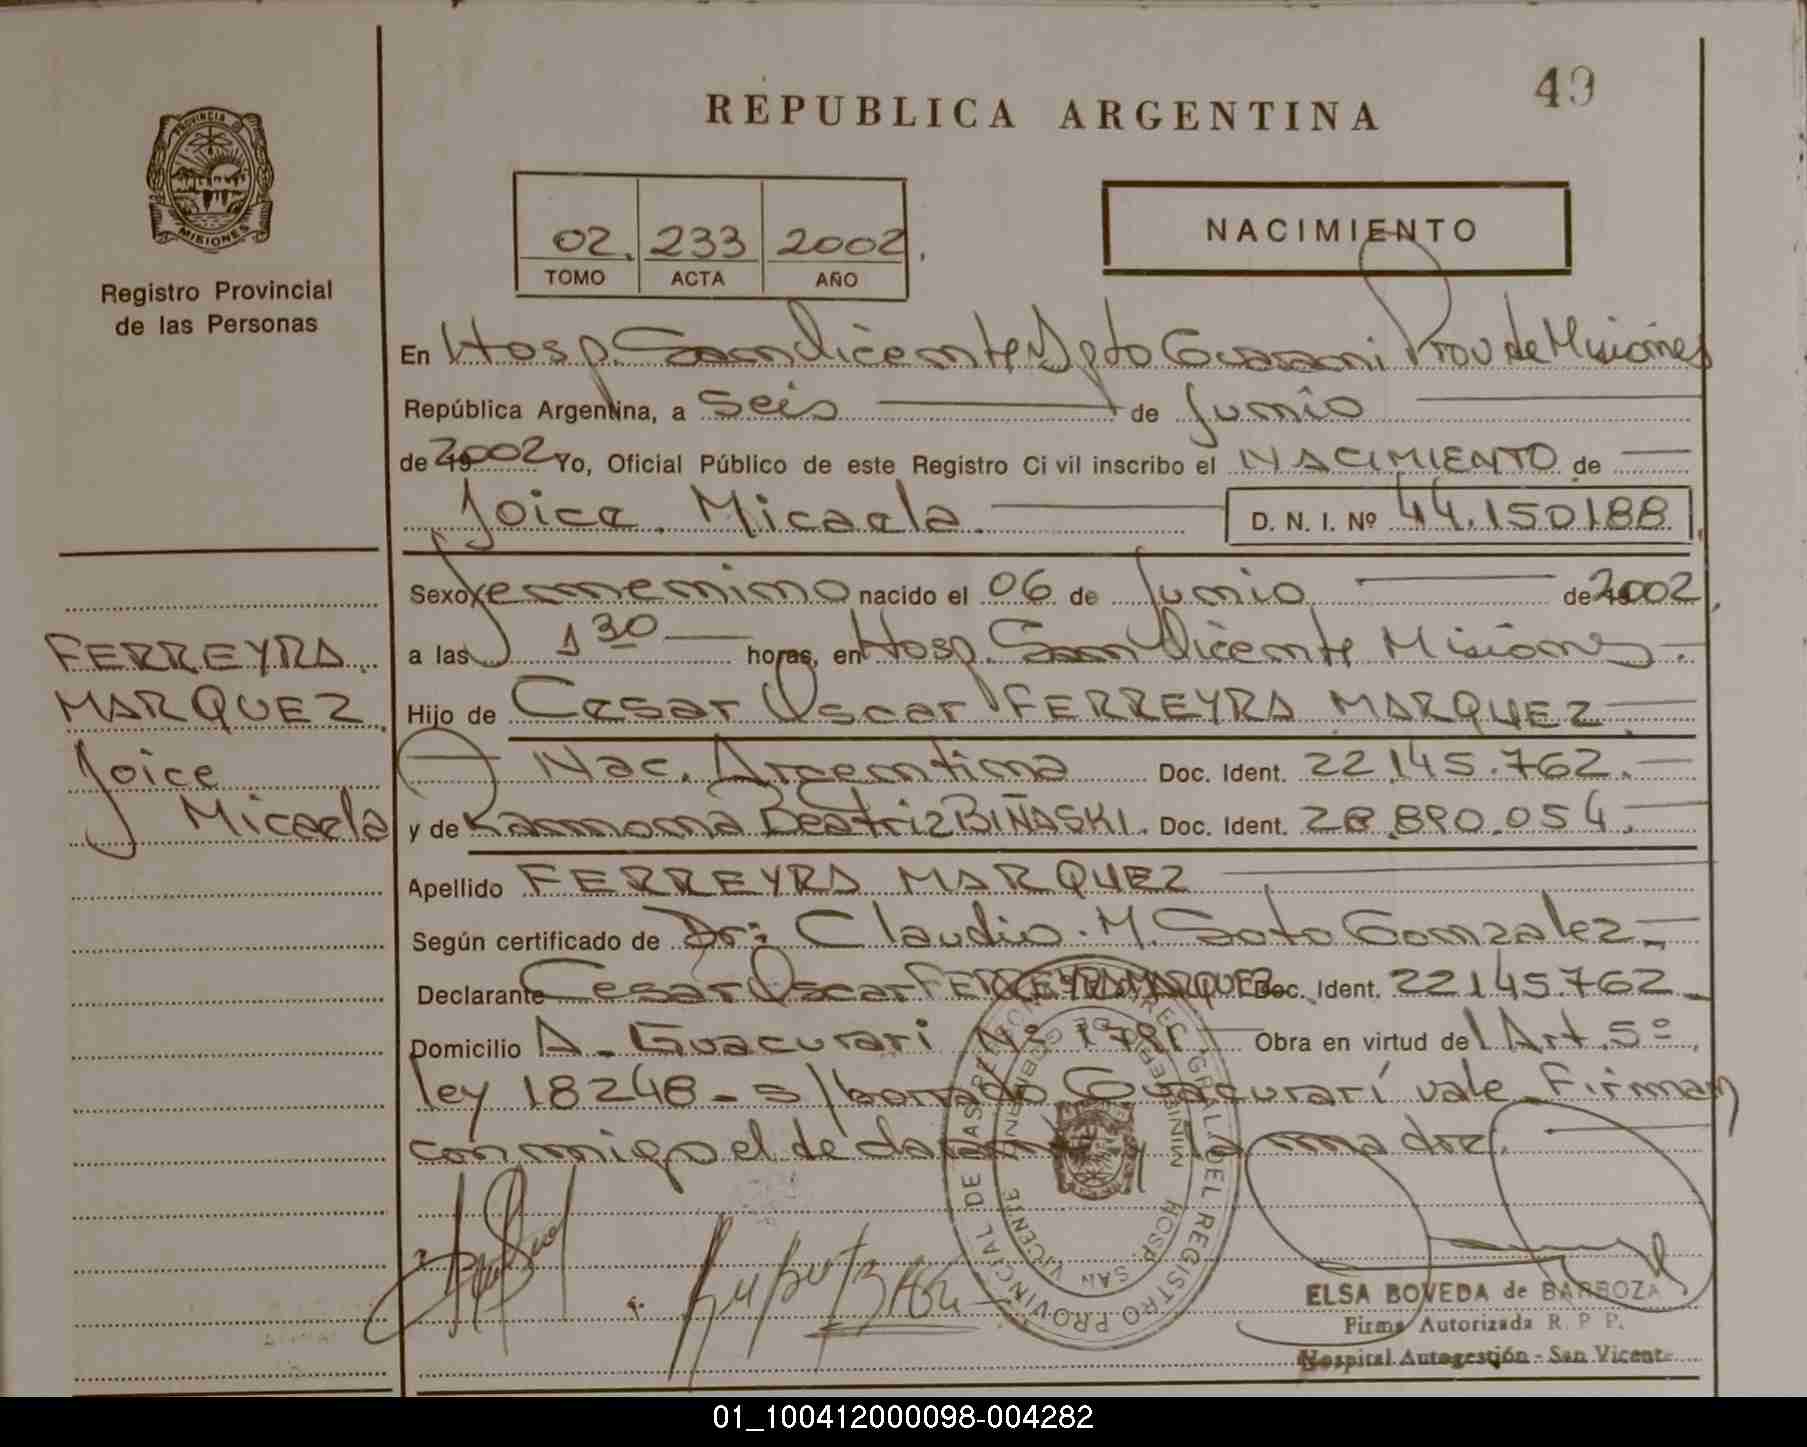 49
REPUBLICA ARGENTINA
PROVINCIA
MISIONES
Registro Provincial
de las Personas
02. 233 2002.
TOMO ACTA AÑO
NACIMIENTO
En Hosp. San Vicente Dpto Guarani Prov de Misiones
República Argentina, a seis de Junio
de 2002 Yo, Oficial Público de este Registro Civil inscribo el NACIMIENTO de
Joice Micaela. D. N. I. Nº 44.150188
Sexo femenino nacido el 06 de Junio de 2002
a las 1 30 horas, en Hosp. San Vicente Misiones.
FERREYRA
MARQUEZ
Joice
Micaela
Hijo de Cesar Oscar FERREYRA MARQUEZ
Nac. Argentina Doc. Ident. 22.145.762.
y de Ramona Beatriz BIÑASKI. Doc. Ident. 28.890.054.
Apellido FERREYRA MARQUEZ
Según certificado de Dr: Claudio. M. Soto Gonzalez
Declarante Cesar Oscar FERREYRA MARQUEZ Doc. Ident. 22145.762
Domicilio A. Guacurari Nº Obra en virtud del Art. 5º
ley 18248 - s/borrado Guacurarí vale Firman
conmigo el declarante y la madre.
REGISTRO PROVINCIAL DE LAS PERSONAS
HOSP. SAN VICENTE
ELSA BOVEDA de BARBOZA
Firma Autorizada R. P P.
Hospital Autogestión - San Vicente
01_100412000098-004282